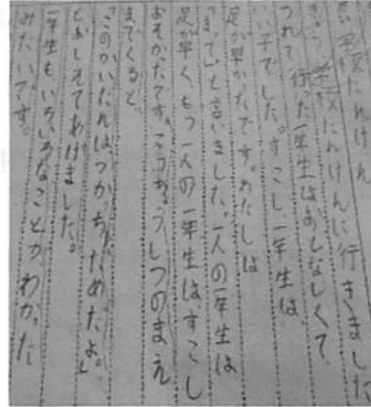 学校たんけん
きょう学校たんけんに行きました
つれて行た一年生はおとなしくて
い子でした。すこし一年生は
足が早かたです。わたしは
まって」と言いました。一人の一年生は
足が早く、もう一人の一年生は、すこし
おそかたです。こうちょうしつのまえ
まてくると、
「このかいだんはつかっちゃだめだよ。」
とおしえてあげました。
一年生もいろいろなことがわかった
みたいです。